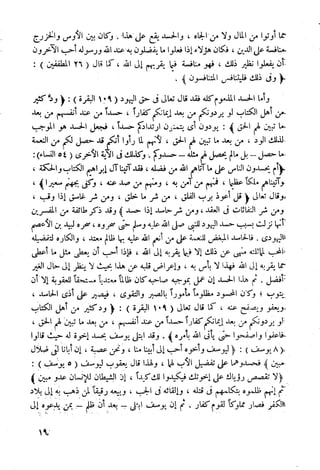 مما أوتوا من المال ولا من الجاه ، والحسد يقع على هذا . وكان بين الأوس والخزرج
منافسة على الدين ، فكان هؤلاء إذا فعلوا ما يفضلون به عند الله ورسوله أحب الآخرون
أن يفعلوا نظير ذلك ، فهو منافسة فيما يقربهم إلى الله ، كما قال ( ٢٦ المطففين ) :
﴿ وفي ذلك فليتنافس المتنافسون ﴾ .
وأما الحسد المذموم كله فقد قال تعالى في حق اليهود ( ١٠٩ البقرة ) : ﴿ ود كثير
من أهل الكتاب لو يردونكم من بعد إيمانكم كفاراً ، حسداً من عند أنفسهم من بعد
ما تبين لهم الحق ﴾ : يودون أى يتمنون ارتدادكم حسداً ، فجعل الحسد هو الموجب
لذلك الود ، من بعد ما تبين لهم الحق ، لأنهم لما رأوا أنكم قد حصل لكم من النعمة
ما حصل – بل مالم يحصل لهم مثله – حسدوكم . وكذلك في الآية الأخرى ( ٥٤ النساء ) :
﴿ أم يحسدون الناس على ما آتاهم الله من فضله ، فقد آتينا آل إبراهيم الكتاب والحكمة ،
وآتيناهم ملكا عظيما ، فمنهم من آمن به ، ومنهم من صد عنه ، وكفى بجهنم سعيرا ﴾ ،
وقال تعالى ﴿ قل أعوذ برب الفلق ، من شر ما خلق ، ومن شر غاسق إذا وقب ،
ومن شر النفاثات في العقد ، ومن شر حاسد إذا حسد ﴾ وقد ذكر طائفة من المفسرين
أنها نزلت بسبب حسد اليهود للنبي صلى الله عليه وسلم حتى سحروه ، سحره لبيد بن الأعصم
اليهودى . فالحاسد المبغض للنعمة على من أنعم الله عليه بها ظالم معتد ، والكاره لتفضيله
المحب لمماثلته منهى عن ذلك إلا فيما يقربه إلى الله ، فإذا أحب أن يعطى مثل ما أعطى
مما يقربه إلى الله فهذا لا بأس به ، وإعراض قلبه عن هذا بحيث لا ينظر إلى حال الغير
أفضل . ثم هذا الحسد إن عمل بموجبه صاحبه كان ظالماً معتدياً مستحقاً للعقوبة إلا أن
يتوب ؛ وكان المحسود مظلوماً مأموراً بالصبر والتقوى ، فيصبر على أذى الحاسد ،
ويعفو ويصفح عنه ، كما قال تعالى ( ١٠٩ البقرة ) : ﴿ ود كثير من أهل الكتاب
لو يردونكم من بعد إيمانكم كفاراً حسداً من عند أنفسهم ، من بعد ما تبين لهم الحق ،
فاعفوا واصفحوا حتى يأتى الله بأمره ﴾ . وقد ابتلى يوسف بحسد إخوته له حيث قالوا
( ٨ يوسف ) : ﴿ ليوسف وأخوه أحب إلى أبينا منا ، ونحن عصبة ، إن أبانا لفى ضلال
مبين ﴾ فحسدوهما على تفضيل الأب لهما ، ولهذا قال يعقوب ليوسف ( ٥ يوسف ) :
﴿ لا تقصص رؤياك على إخوتك فيكيدوا لك كيداً ، إن الشيطان للإنسان عدو مبين ﴾
ثم إنهم ظلموه بتكلمهم في قتله ، وإلقائه في الجب ، وبيعه رقيقاً لمن ذهب به إلى بلاد
الكفر فصار مملوكاً لقوم كفار . ثم إن يوسف ابتلى – بعد أن ظلم – بمن يدعوه إلى
١٩